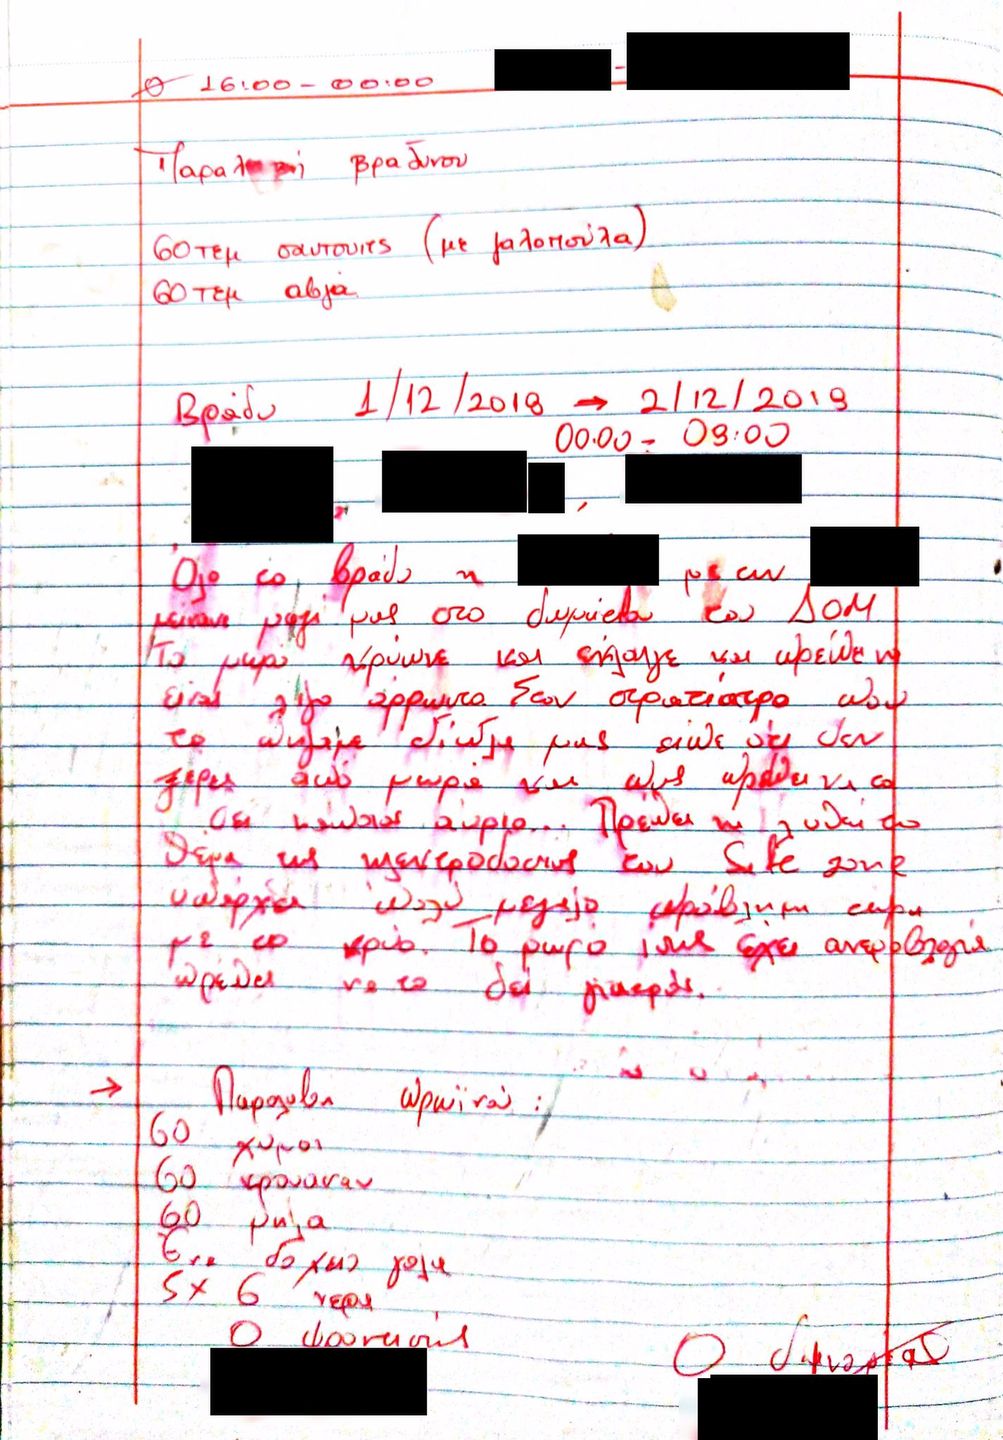 16:00 - 00:00 -
Παραλαβή βραδυνού
60 τεμ σαντουιτς (με γαλοπούλα)
60 τεμ αβγά
Βράδυ 1/12/2018 → 2/12/2018
00:00 - 08:00
Όλο το βράδυ η με την
μείναν μαζί μας στο δωμάτιο του ΔΟΜ
Το μωρό κρύωνε και έκλαιγε και πρέπει να
είναι λίγο άρρωστο. Στον στρατίατρο που
το πήγαμε δίπλα μας είπε ότι δεν
ξέρει από μωρά και πως πρέπει να το
δει κάποιος αύριο... Πρέπει να λυθεί το
θέμα της ηλεκτροδοσίας του Safe zone
υπάρχει πολύ μεγάλο πρόβλημα τώρα
με το κρύο. Το μωρό της έχει ανεμοβλογιά
πρέπει να το δει γιατρός.
→ Παραλαβή πρωϊνού :
60 χυμοι
60 κρουασαν
60 μηλα
6 δοχεια γαλα
5 x 6 νερα
Ο φροντιστής
Ο